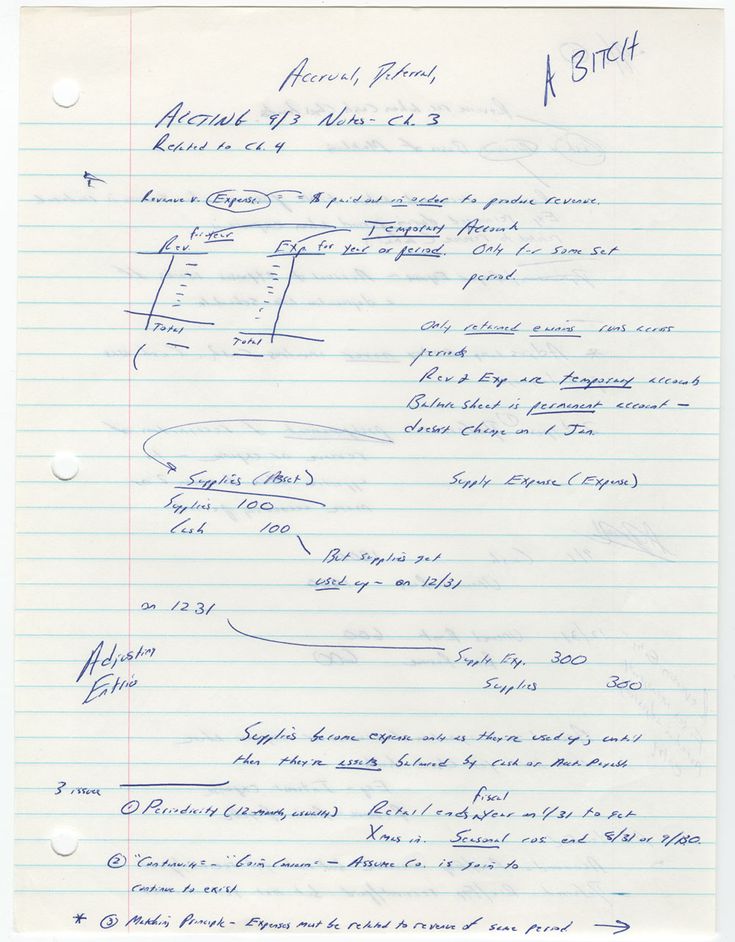 Accrual, Deferral,
A BITCH
ACCTING 9/3 Notes - Ch. 3
Related to Ch. 4
Revenue v. Expense. = $ paid out in order to produce revenue.
for year Temporary Accounts
Rev. Exp for year or period. Only for some set
period.
Total
Total
Only retained earnings runs across
periods
Rev & Exp are temporary accounts
Balance Sheet is permanent account -
doesn't change on 1 Jan.
Supplies (Asset) Supply Expense (Expense)
Supplies 100
Cash 100
But supplies get
used up - on 12/31
on 1231
Adjusting
Entries
Supply Exp. 300
Supplies 300
Supplies become expense only as they're used up; until
then they're assets balanced by cash or
3 issues
① Periodicity (12-month, usually) Retail ends fiscal year on 1/31 to get
Xmas in. Seasonal cos end 8/31 or 9/30.
② "Continuity" - "Going Concern" - Assume Co. is going to
continue to exist
* ③ Matching Principle - Expenses must be related to revenue of same period →